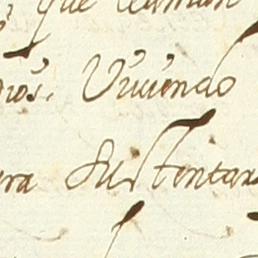 que llaman
dios, Viviendo
ra Sustentar